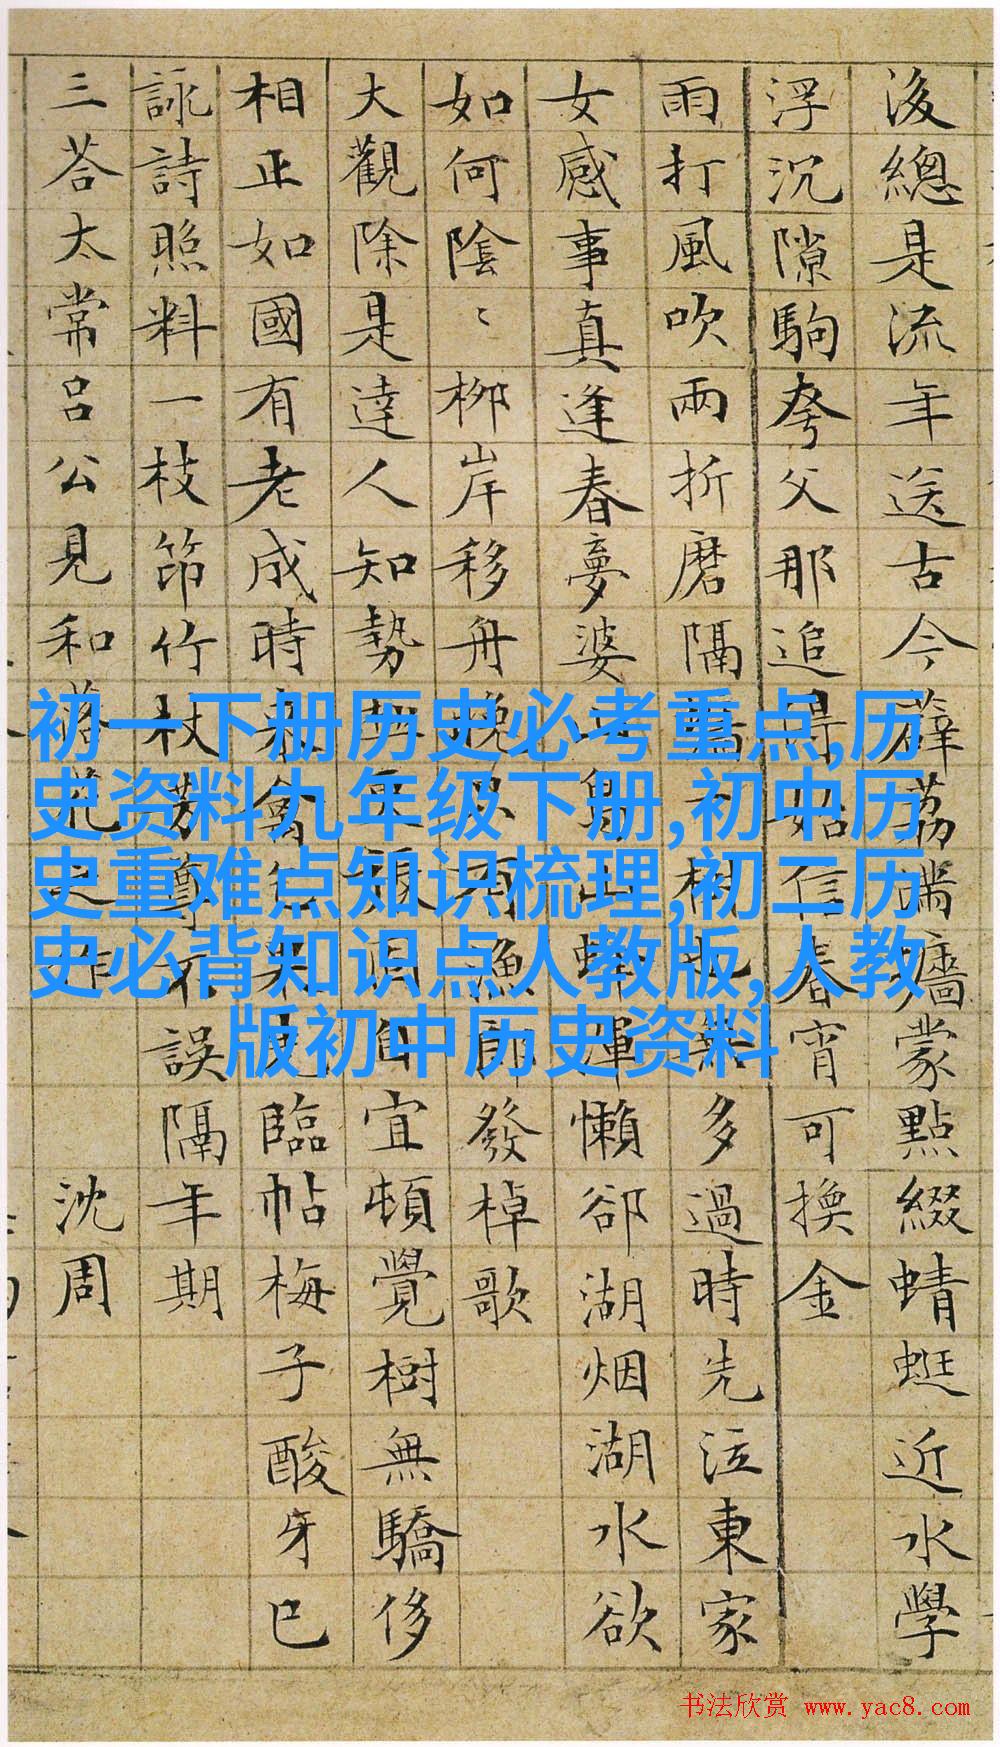 後總是流年送古今薜荔蒙點綴蜻蜓近水學
浮沉隙駒夸父那追得始信春宵可換金
雨打風吹兩折磨隔樹無多過時先泣東家
女感事真逢春夢婆鳥渾懶卻湖烟湖水欲
如何陰〻柳岸移舟晚有漁郎發棹歌
大觀除是達人知勢宜頓覺樹無驕侈
相正如國有老成時禽臨帖梅子酸牙已
詠詩照料一枝笻竹杖尊不誤隔年期
三荅太常呂公見和落花之作 沈周
初一下册历史必考重点,历
史资料九年级下册,初中历
史重难点知识梳理,初二历
史必背知识点人教版,人教
版初中历史资料
书法欣赏 www.yac8.com